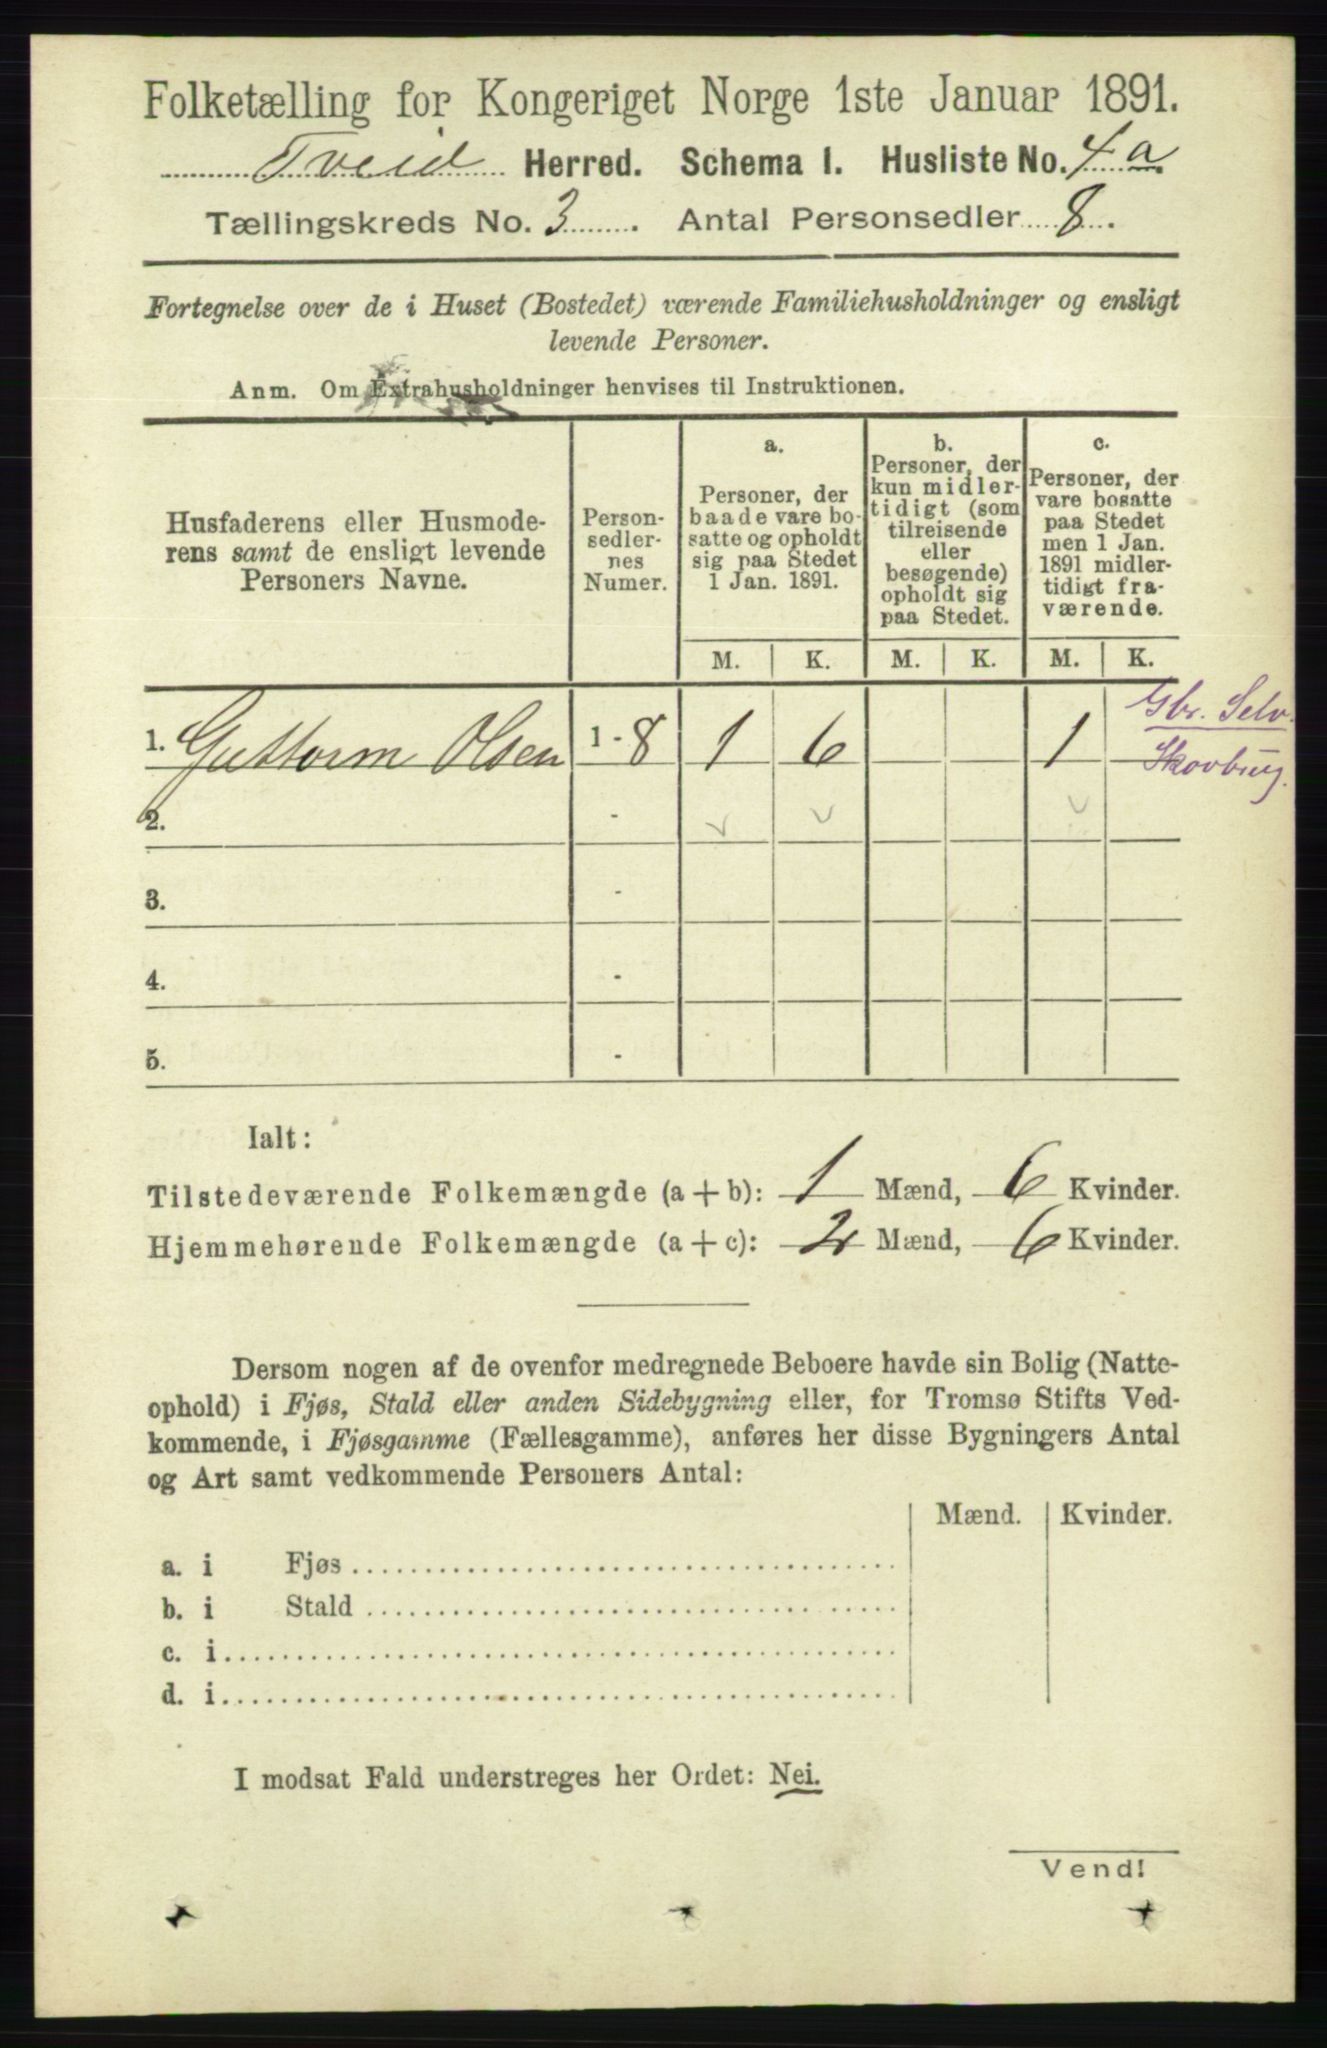 Folketælling for Kongeriget Norge 1ste Januar 1891.
Tveid Herred. Schema 1. Husliste No. 4 a
Tællingskreds No. 3. Antal Personsedler 8.
Fortegnelse over de i Huset (Bostedet) værende Familiehusholdninger og ensligt
levende Personer.
Anm. Om Extrahusholdninger henvises til Instruktionen.
Husfaderens eller Husmode-
rens samt de ensligt levende
Personers Navne.
Person-
sedler-
nes
Numer.
a.
Personer, der
baade vare bo-
satte og opholdt
sig paa Stedet
1 Jan. 1891.
b.
Personer, der
kun midler-
tidigt (som
tilreisende
eller
besøgende)
opholdt sig
paa Stedet.
c.
Personer, der
vare bosatte
paa Stedet
men 1 Jan.
1891 midler-
tidigt fra-
værende.
M. K. M. K. M. K.
1. Guttorm Olsen 1 - 8 1 6 1
Gbr. Selv.
Skovbrug.
2. -
3. -
4. -
5. -
Ialt:
Tilstedeværende Folkemængde (a + b): 1 Mænd, 6 Kvinder.
Hjemmehørende Folkemængde (a + c): 2 Mænd, 6 Kvinder.
Dersom nogen af de ovenfor medregnede Beboere havde sin Bolig (Natte-
ophold) i Fjøs, Stald eller anden Sidebygning eller, for Tromsø Stifts Ved-
kommende, i Fjøsgamme (Fællesgamme), anføres her disse Bygningers Antal
og Art samt vedkommende Personers Antal:
Mænd. Kvinder.
a. i Fjøs
b. i Stald
c. i
d. i
I modsat Fald understreges her Ordet: Nei.
Vend!